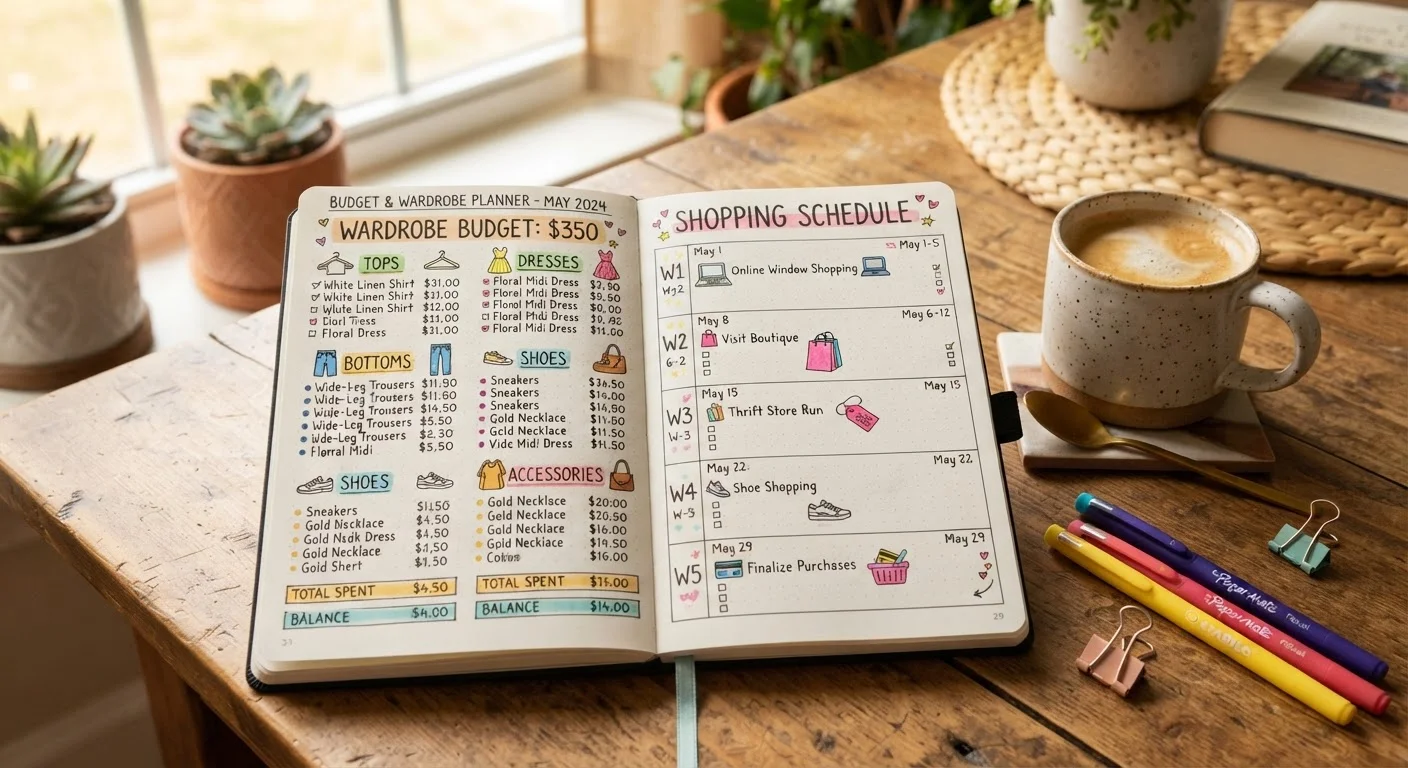 BUDGET & WARDROBE PLANNER - MAY 2024
WARDROBE BUDGET: $350
TOPS
White Linen Shirt $31.00
White Linen Shirt $31.00
White Linen Shirt $12.00
$11.00
Floral Dress $31.00
DRESSES
Floral Midi Dress
Floral Midi Dress $9.50
Floral Midi Dress
Floral Midi Dress
Floral Midi Dress $11.00
BOTTOMS
Wide-Leg Trousers $11.90
Wide-Leg Trousers $11.60
Wide-Leg Trousers $14.50
Wide-Leg Trousers $5.50
Wide-Leg Trousers $2.30
Floral Midi $5,50
SHOES
Sneakers
Sneakers
Sneakers $14.90
Gold Necklace
Gold Necklace $11.50
Midi Dress
SHOES
Sneakers
Gold Nscklace $4.50
Gold Dress $4.50
Gold Necklace
Gold Shert $1.50
ACCESSORIES
Gold Necklace $20:00
Gold Necklace $20.50
Gold Necklace $16.00
Gold Necklace
$16.00
TOTAL SPENT $4.50
BALANCE $4.00
TOTAL SPENT
BALANCE $14.00
SHOPPING SCHEDULE
W1
May 1
May 1-5
Online Window Shopping
W2
6-2
May 8
May 6-12
Visit Boutique
W3
W-3
May 15
May 15
Thrift Store Run
W4
May 22
May 22
Shoe Shopping
W5
May 29
May 29
Finalize Purchases
29
Paper Mate
Paper Mate
STABILO